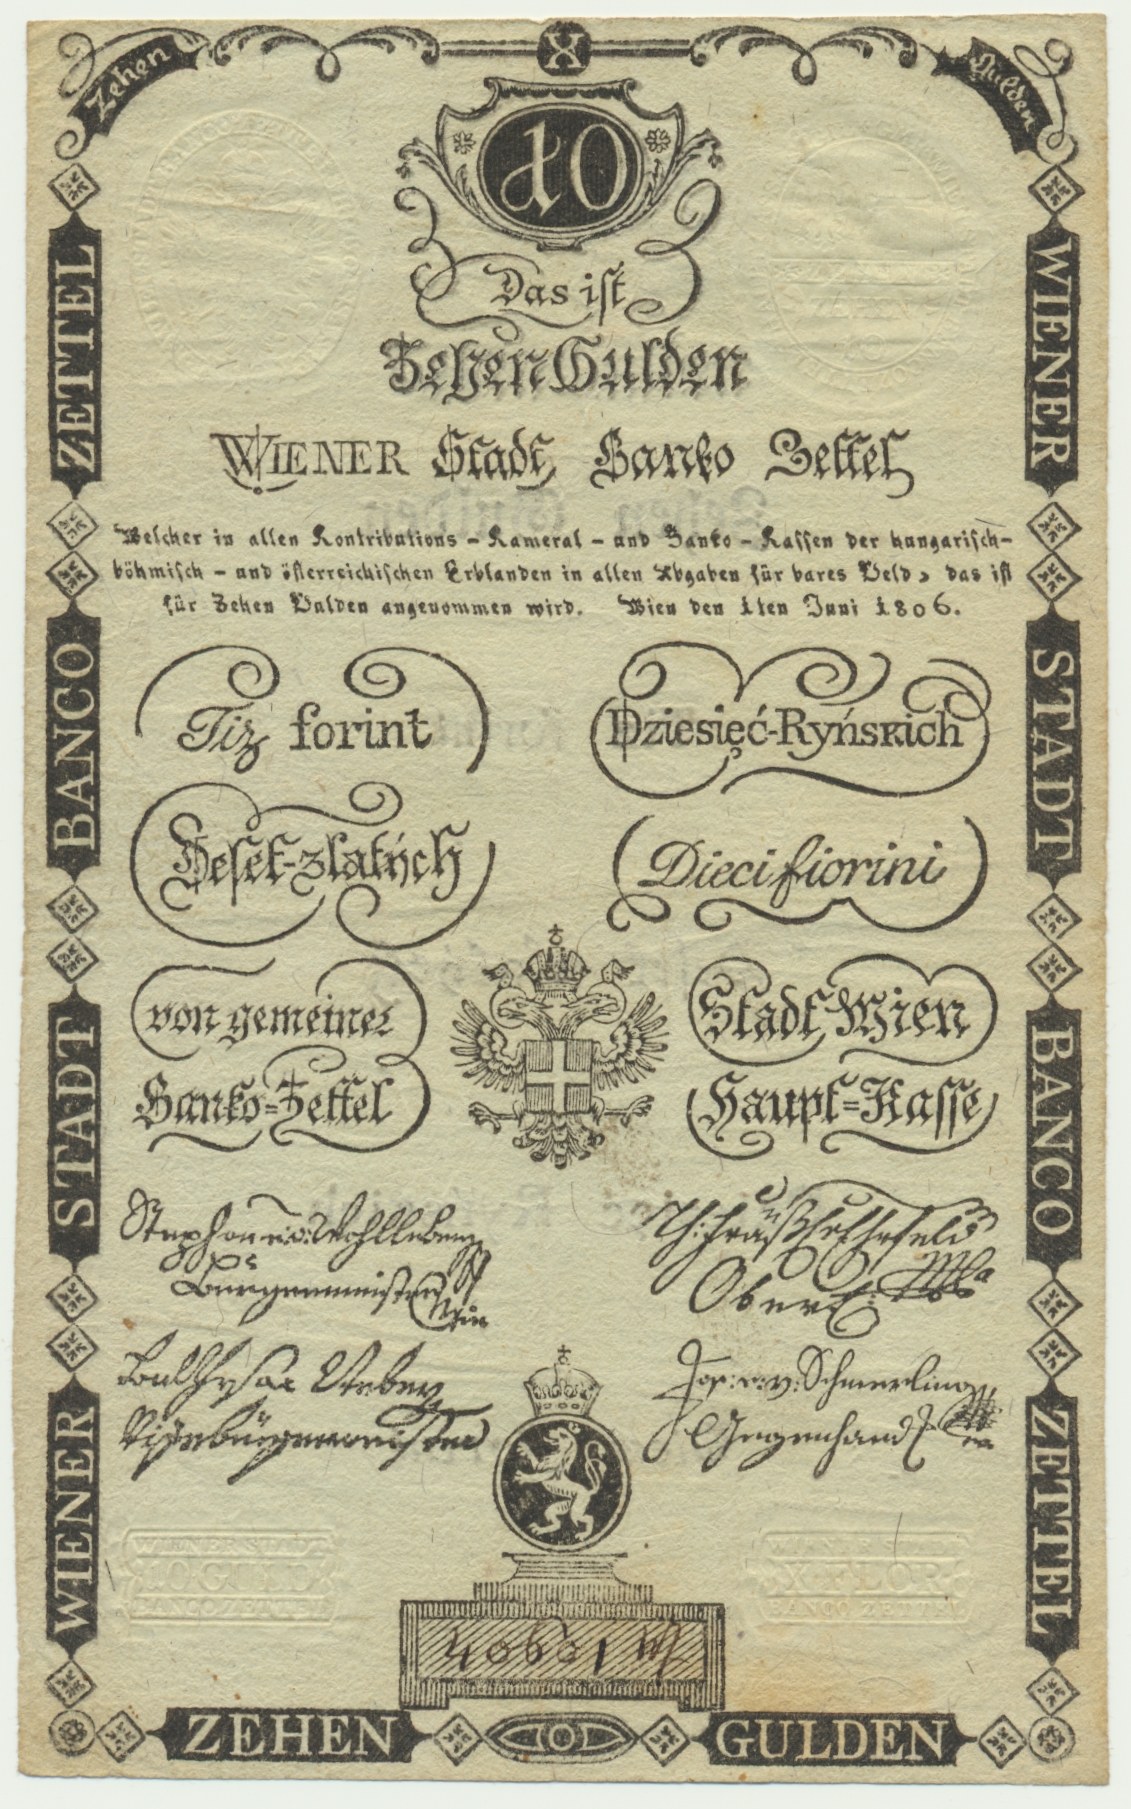 Zehen
X
Gulden
10
Das ist
Zehen Gulden
WIENER Stadt Banko Zettel
Welcher in allen Kontributions - Kameral - und Banko - Kassen der hungarisch-
böhmisch - und österreichischen Erblanden in allen Abgaben für bares Geld, das ist
für Zehen Gulden angenommen wird. Wien den 1ten Juni 1806.
Tiz forint
Dziesięć-Ryńskich
Deset-zlatých
Dieci fiorini
von gemeiner
Stadt Wien
Banko-Zettel
Haupt=Kasse
Stephan v: Wohlleben
Burgermeister
Ober
Vizebürgermeister
Jos: v: Schmerling
Gegenhand
WIENER STADT BANCO ZETTEL
WIENER STADT BANCO ZETTEL
WIENER STADT
X GULD
BANCO ZETTEL
X FLOR
BANCO ZETTEL
40601
ZEHEN
GULDEN